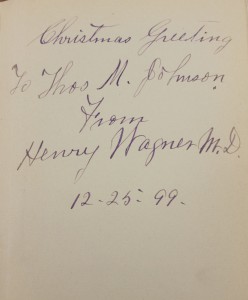 Christmas Greeting
To Thos M. Johnson
From
Henry Wagner M.D.
12-25-99.